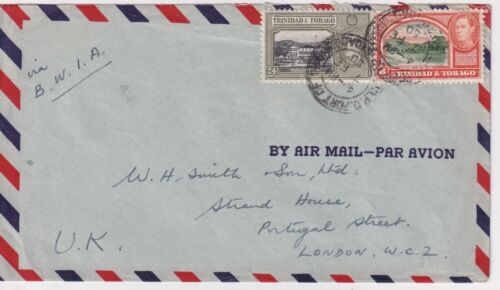 via
B.W.I.A.
TRINIDAD & TOBAGO
24
TRINIDAD & TOBAGO
BY AIR MAIL—PAR AVION
W. H. Smith & Son, Ltd.
Strand House,
Portugal Street.
LONDON. W.C.2.
U.K.